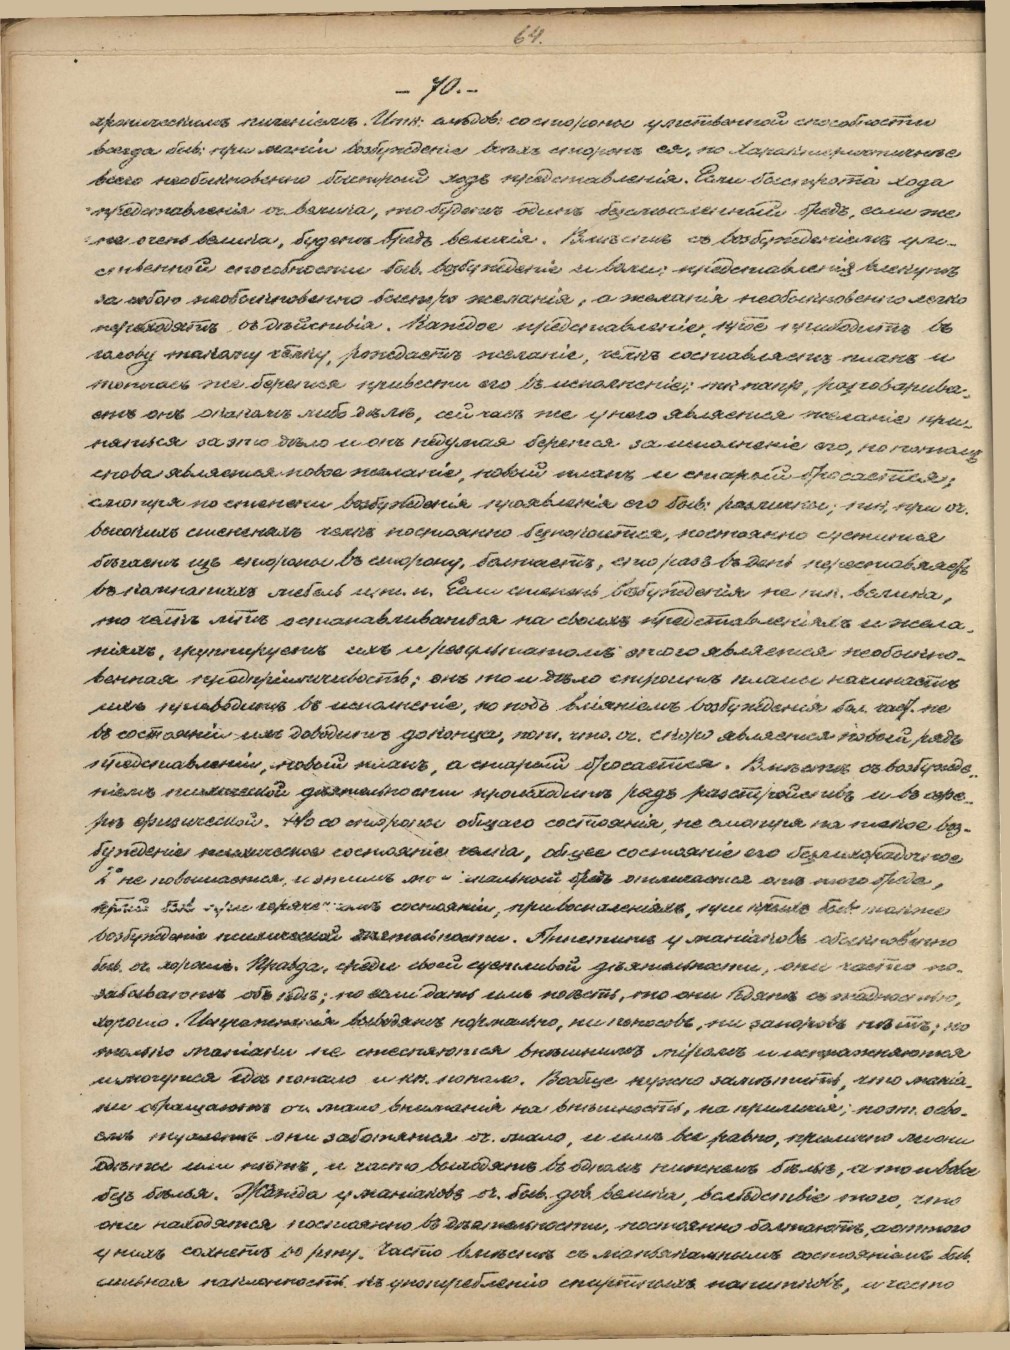 64.
– 70. –
хроническимъ теченіемъ. Итк: слѣдов: со стороны умственной способности
всегда быв: при маніи возбужденіе всѣхъ сторонъ ея, но характеристичнѣе
всего необыкновенно быстрый ходъ представленія. Если быстрота хода
представленія оч. велика, то будетъ одинъ безсмысленный бредъ, если же
не очень велика, будетъ бредъ величія. Вмѣстѣ съ возбужденіемъ ум-
ственной способности быв. возбужденіе и воли: представленія влекутъ
за собою необыкновенно быстро желанія, а желанія необыкновенно легко
переходятъ въ дѣйствія. Каждое представленіе, кое приходитъ въ
голову такому челку, рождаетъ желаніе, челкъ составляетъ планъ и
тотчасъ же берется привести его въ исполненіе; тк напр, разговарива-
етъ онъ о какомъ либо дѣлѣ, сейчасъ же у него является желаніе при-
няться за это дѣло и онъ недумая берется за исполненіе его, но потомъ
снова является новое желаніе, новый планъ и старый бросается;
смотря по степени возбужденія проявленія его быв: различны; тк, при оч.
высокихъ степеняхъ челкъ постоянно безпокоится, постоянно суетится
бѣгаетъ изъ стороны въ сторону, болтаетъ, сто разъ въ день переставляетъ
въ комнатахъ мебель и т. п. Если степень возбужденія не тк. велика,
то челкъ останавливается на своихъ представленіяхъ и жела-
ніяхъ, группируетъ ихъ и результатомъ этого является необыкно-
венная предпріимчивость; онъ то и дѣло строитъ планы начинаетъ
ихъ приводить въ исполненіе, но подъ вліяніемъ возбужденія бол. част. не
въ состояніи ихъ доводить до конца, пот. что. оч. скоро является новый рядъ
представленій, новый планъ, а старый бросается. Вмѣстѣ съ возбужде-
ніемъ психической дѣятельности происходитъ рядъ разстройствъ и въ сфе-
рѣ физической. Но со стороны общаго состоянія, не смотря на такое воз-
бужденіе психическое состояніе челка, общее состояніе его безлихорадочное
t° не повышается, и этимъ бредъ отличается отъ того бреда,
состояніи, при воспаленіяхъ, при быв. также
возбужденіе психической дѣятельности. Аппетитъ у маніаковъ обыкновенно
быв. оч. хорошъ. Правда, среди своей суетливой дѣятельности, они часто по-
забываютъ объ ѣдѣ; но если дать имъ поѣсть, то они ѣдятъ съ жадностью,
хорошо. Испражненія выводятъ нормально, ни поносовъ, ни запоровъ нѣтъ; но
только маніаки не стесняются внѣшнимъ міромъ и испражняются
и мочутся гдѣ попало и кк. попало. Вообще нужно замѣтить, что маніа-
ки обращаютъ оч. мало вниманія на внѣшность, на приличія; поэт. осво-
емъ туалетѣ они заботятся оч. мало, и имъ все равно, прилично ли они
одѣты или нѣтъ, и часто выходятъ въ одномъ нижнемъ бѣльѣ, а то и вовсе
безъ бѣлья. Жажда у маніаковъ оч. быв. дов. велика, вслѣдствіе того, что
они находятся постоянно въ дѣятельности, постоянно болтаютъ, а оттого
у нихъ сохнетъ во рту. Часто вмѣстѣ съ маніакальнымъ состояніемъ быв.
сильная наклонность къ употребленію спиртныхъ напитковъ, и часто